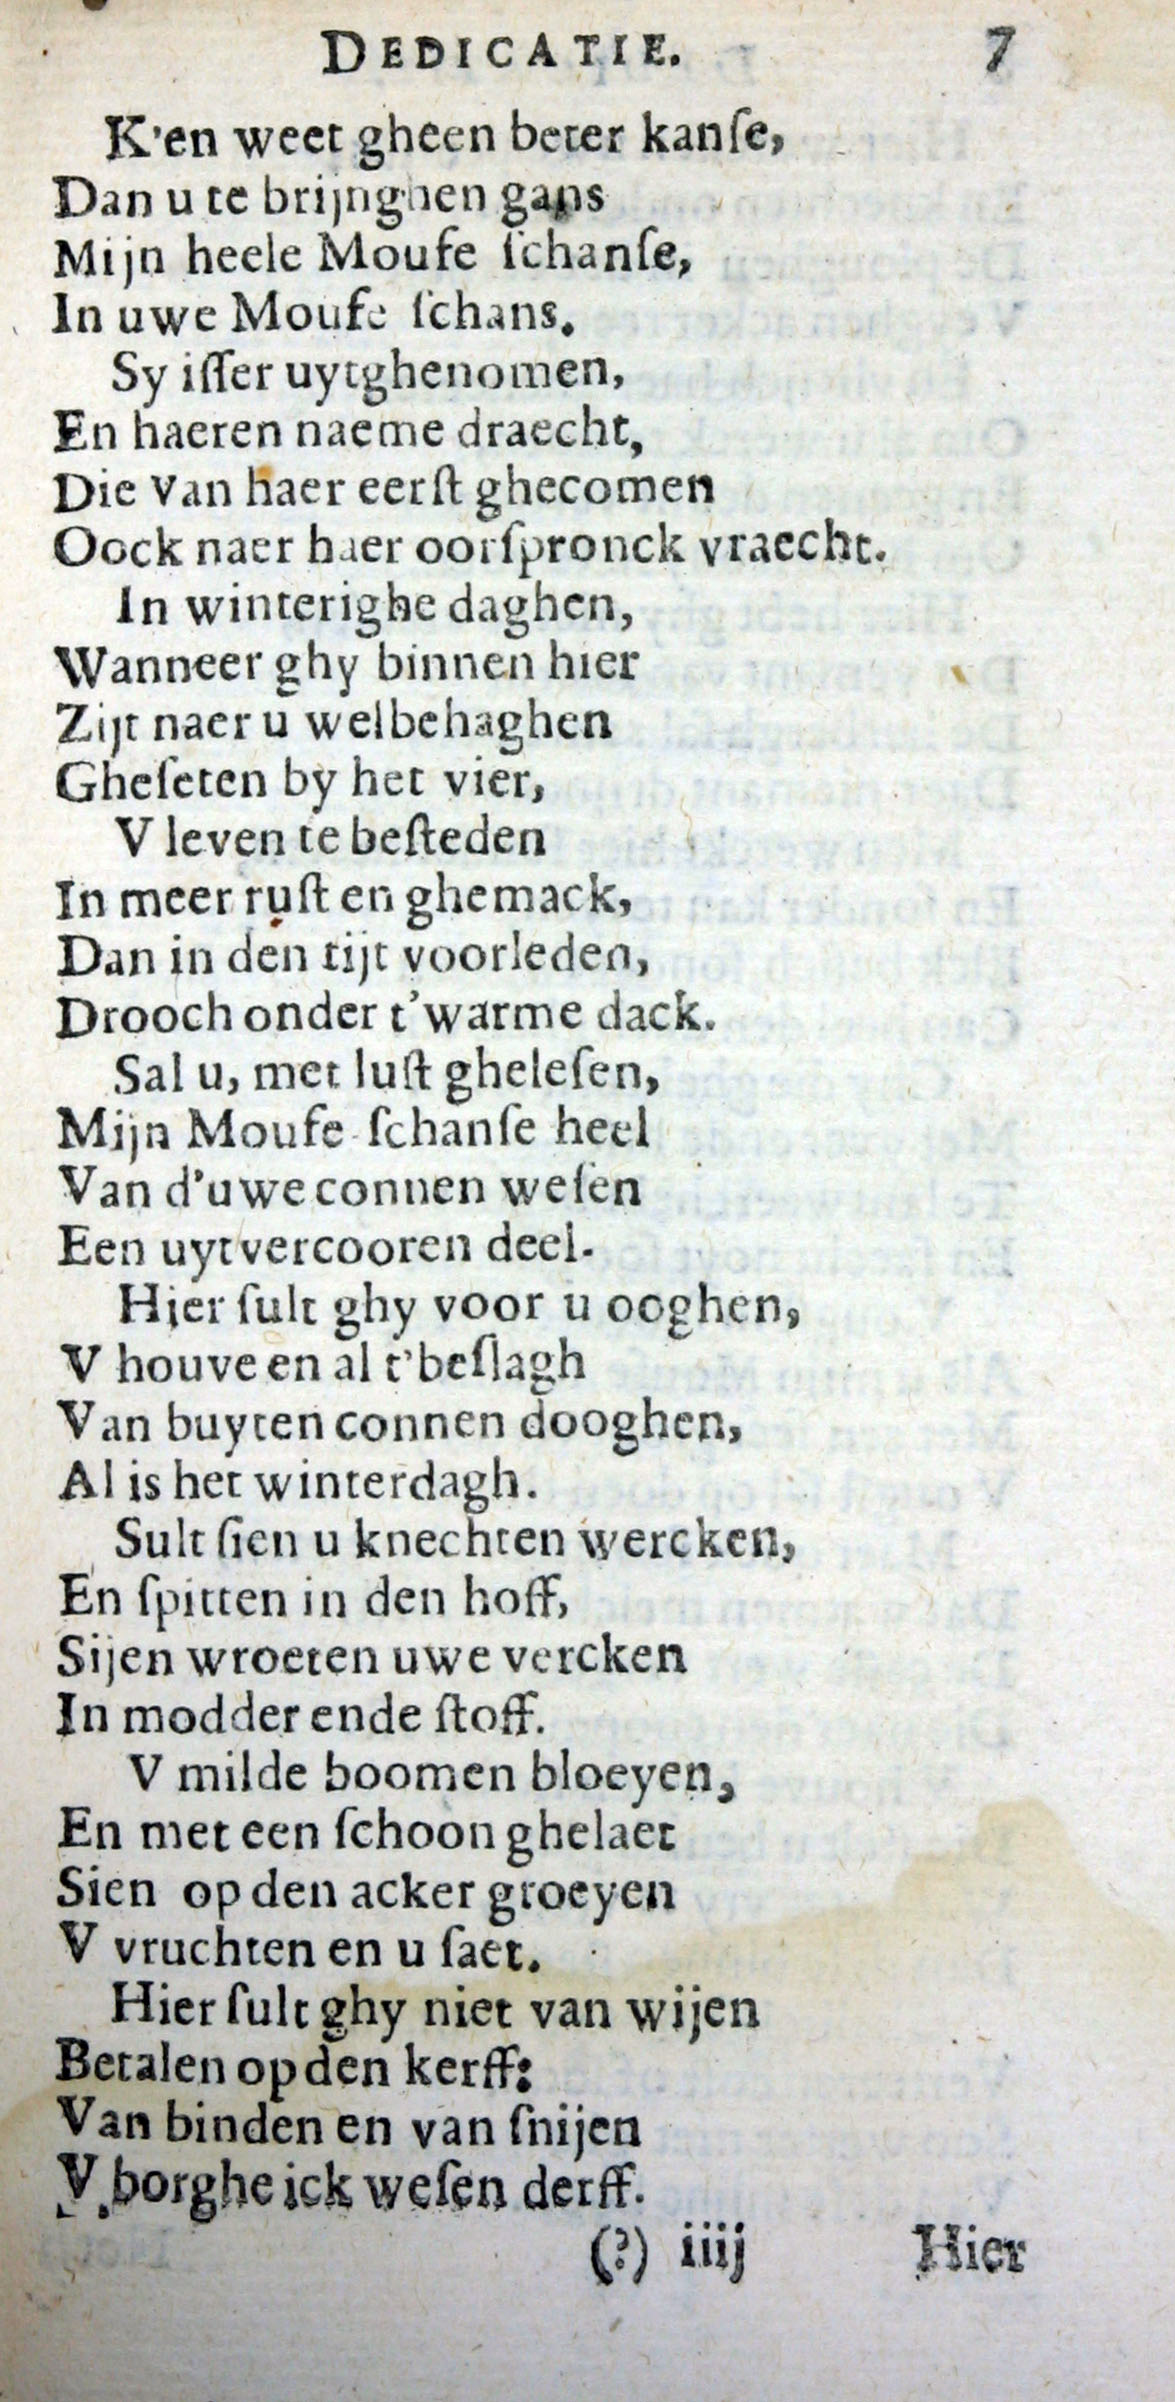 DEDICATIE. 7
K'en weet gheen beter kanſe,
Dan u te brijnghen gans
Mijn heele Mouſe ſchanſe,
In uwe Mouſe ſchans.
Sy iſſer uytghenomen,
En haeren naeme draecht,
Die van haer eerſt ghecomen
Oock naer haer oorſpronck vraecht.
In winterighe daghen,
Wanneer ghy binnen hier
Zijt naer u welbehaghen
Gheſeten by het vier,
V leven te beſteden
In meer ruſt en ghemack,
Dan in den tijt voorleden,
Drooch onder t'warme dack.
Sal u, met luſt gheleſen,
Mijn Mouſe ſchanſe heel
Van d'uwe connen weſen
Een uytvercooren deel.
Hier ſult ghy voor u ooghen,
V houve en al t'beſlagh
Van buyten connen dooghen,
Al is het winterdagh.
Sult ſien u knechten wercken,
En ſpitten in den hoff,
Sijen wroeten uwe vercken
In modder ende ſtoff.
V milde boomen bloeyen,
En met een ſchoon ghelaet
Sien op den acker groeyen
V vruchten en u ſaet.
Hier ſult ghy niet van wijen
Betalen op den kerff:
Van binden en van ſnijen
V borghe ick weſen derff.
(?) iiij Hier